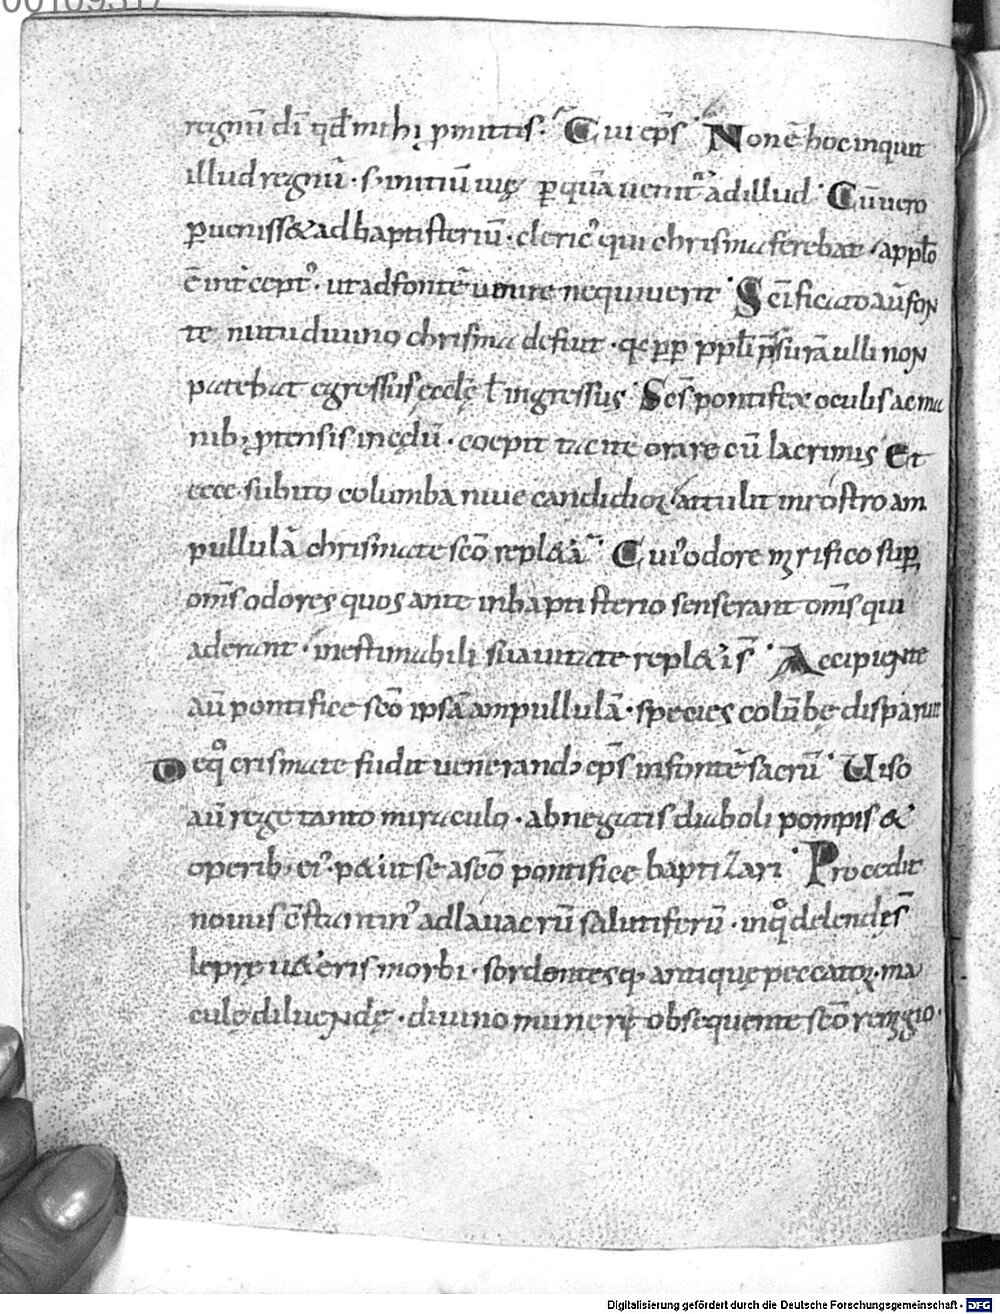 00109317
regnū dī qđ mihi ꝓmittis. Cui ep̄s Non ē hoc inquit
illud regnū · s; initiū uię ꝑ quā uenit̃ ad illud · Cū uero
ꝑuenissꝫ & ad baptisteriū · cleric᾿ qui chrisma ferebat · a ppło
ē int̃cept᾿ · ut ad fontē uenire nequiuerit · Sc̄ificato aū fon
te nutu diuino chrisma defuit · & ꝓpt̃ ppłi p̄ssurā ulli non
patebat egressus ęccłę ł ingressus · Sc̄s pontifex oculis ac ma
nibꝫ ꝓtensis in cęlū · coepit tacite orare cū lacrimis Et
ecce subito columba niue candidior attulit in rostro am
pullulā chrismate sc̄o repl&ā · Cui᾿ odore mirifico suꝑ
om̄s odores quos ante in baptisterio senserant om̄s qui
aderant · inestimabili suauitate repl&i s̄ · Accipiente
aū pontifice sc̄o ipsā ampullulā · species colūbę disparuit
De q° crismate fudit uenerandꝰ ep̄s in fontē sacrū · Uiso
aū rege tanto miraculo · abnegatis diaboli pompis &
operibꝫ ei᾿ · p&iit se a sc̄o pontifice baptizari · Procedit
nouus c̄stantin᾿ ad lauacrū salutiferū · inq° delendę s̄
leprę u&eris morbi · sordentesq; antique peccatoꝝ · ma
culę diluendę · diuino munere obsequente sc̄o remigio ·
Digitalisierung gefördert durch die Deutsche Forschungsgemeinschaft - DFG